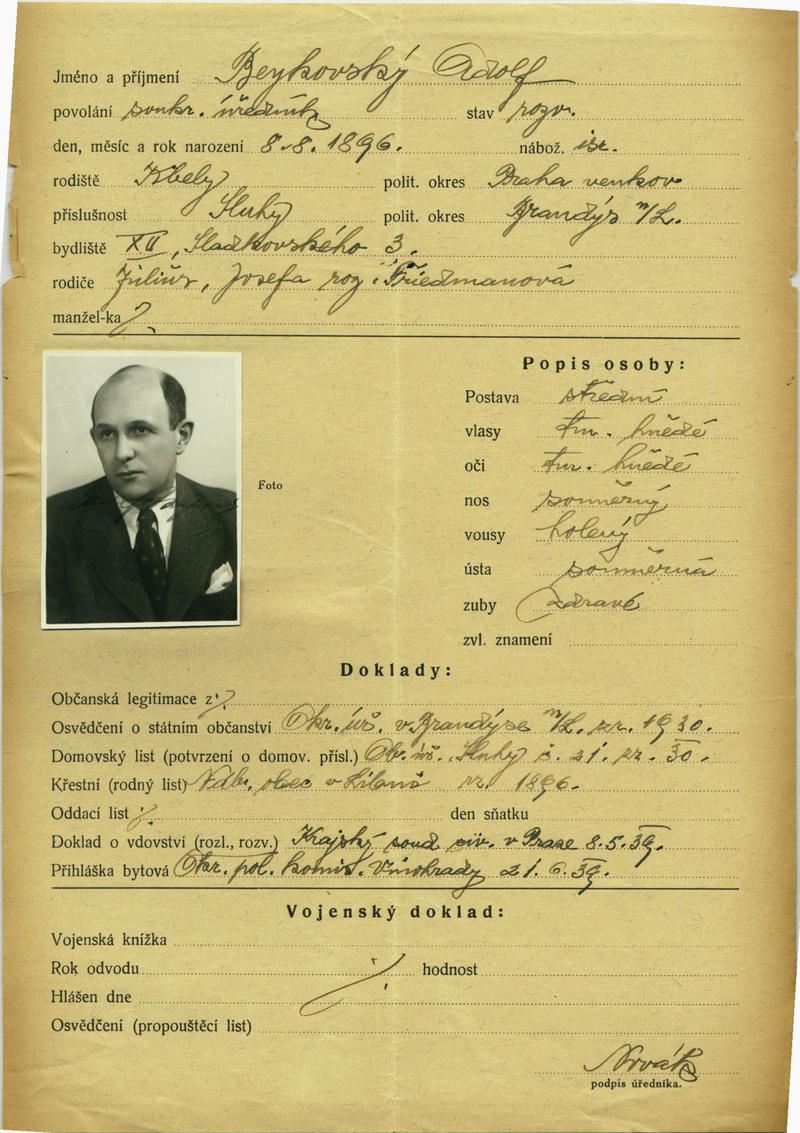 Jméno a příjmení Beykovský Adolf
povolání soukr. úředník stav rozv.
den, měsíc a rok narození 8.8. 1896. nábož. isr.
rodiště Kbely polit. okres Praha venkov
příslušnost Sluhy polit. okres Brandýs n/L.
bydliště XII, Sladkovského 3.
rodiče Julius, Josefa roz. Friedmanová
manžel-ka
Foto
Popis osoby:
Postava střední
vlasy tm. hnědé
oči tm. hnědé
nos souměrný
vousy holený
ústa souměrná
zuby zdravé
zvl. znamení
Doklady:
Občanská legitimace z
Osvědčení o státním občanství Okr. úř. v Brandýse n/L. z r. 1930.
Domovský list (potvrzení o domov. přísl.) Ob. úř. Sluhy č. 21. z r. 30.
Křestní (rodný list) Náb. obec v Libni z r. 1896.
Oddací list den sňatku
Doklad o vdovství (rozl., rozv.) Krajský soud civ. v Praze 8.5.39.
Přihláška bytová Okr. pol. komis. Vinohrady 21. 6. 39.
Vojenský doklad:
Vojenská knížka
Rok odvodu hodnost
Hlášen dne
Osvědčení (propouštěcí list)
Novák
podpis úředníka.